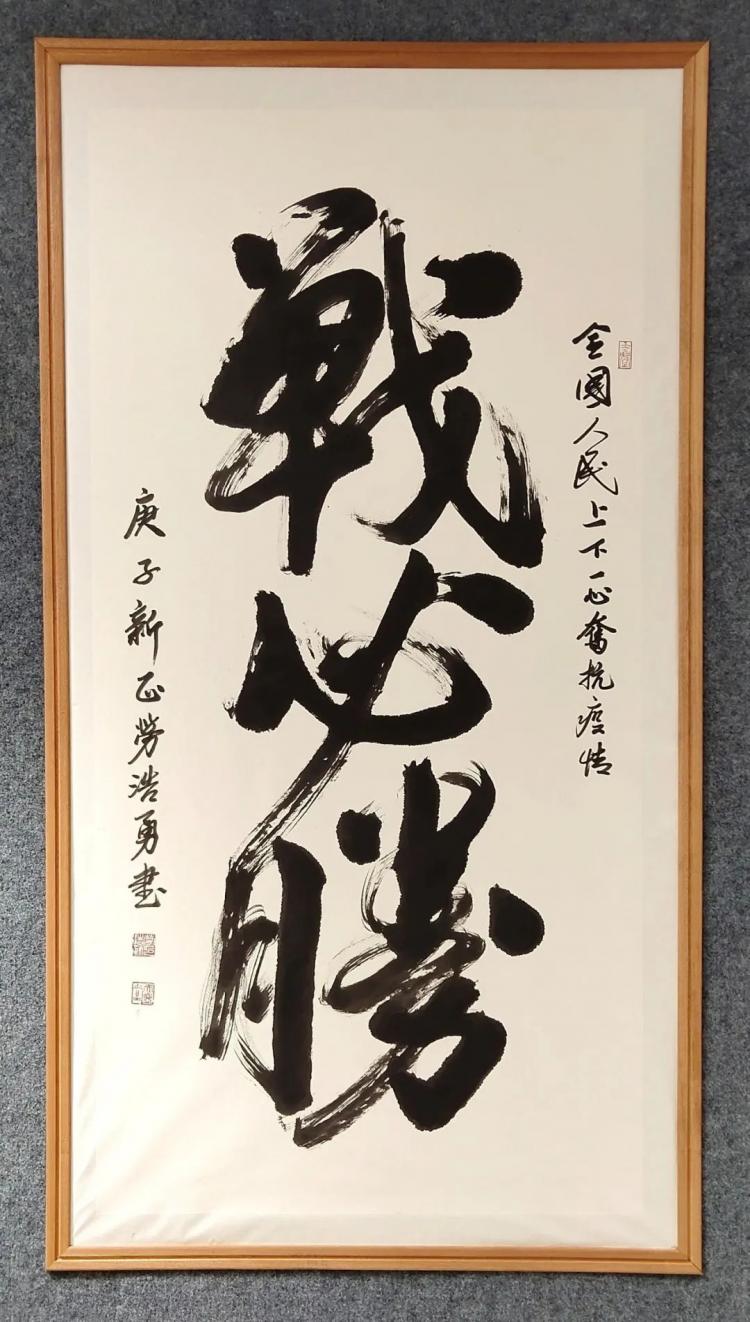 全國人民上下一心奮抗疫情
戰必勝
庚子新正勞浩勇書